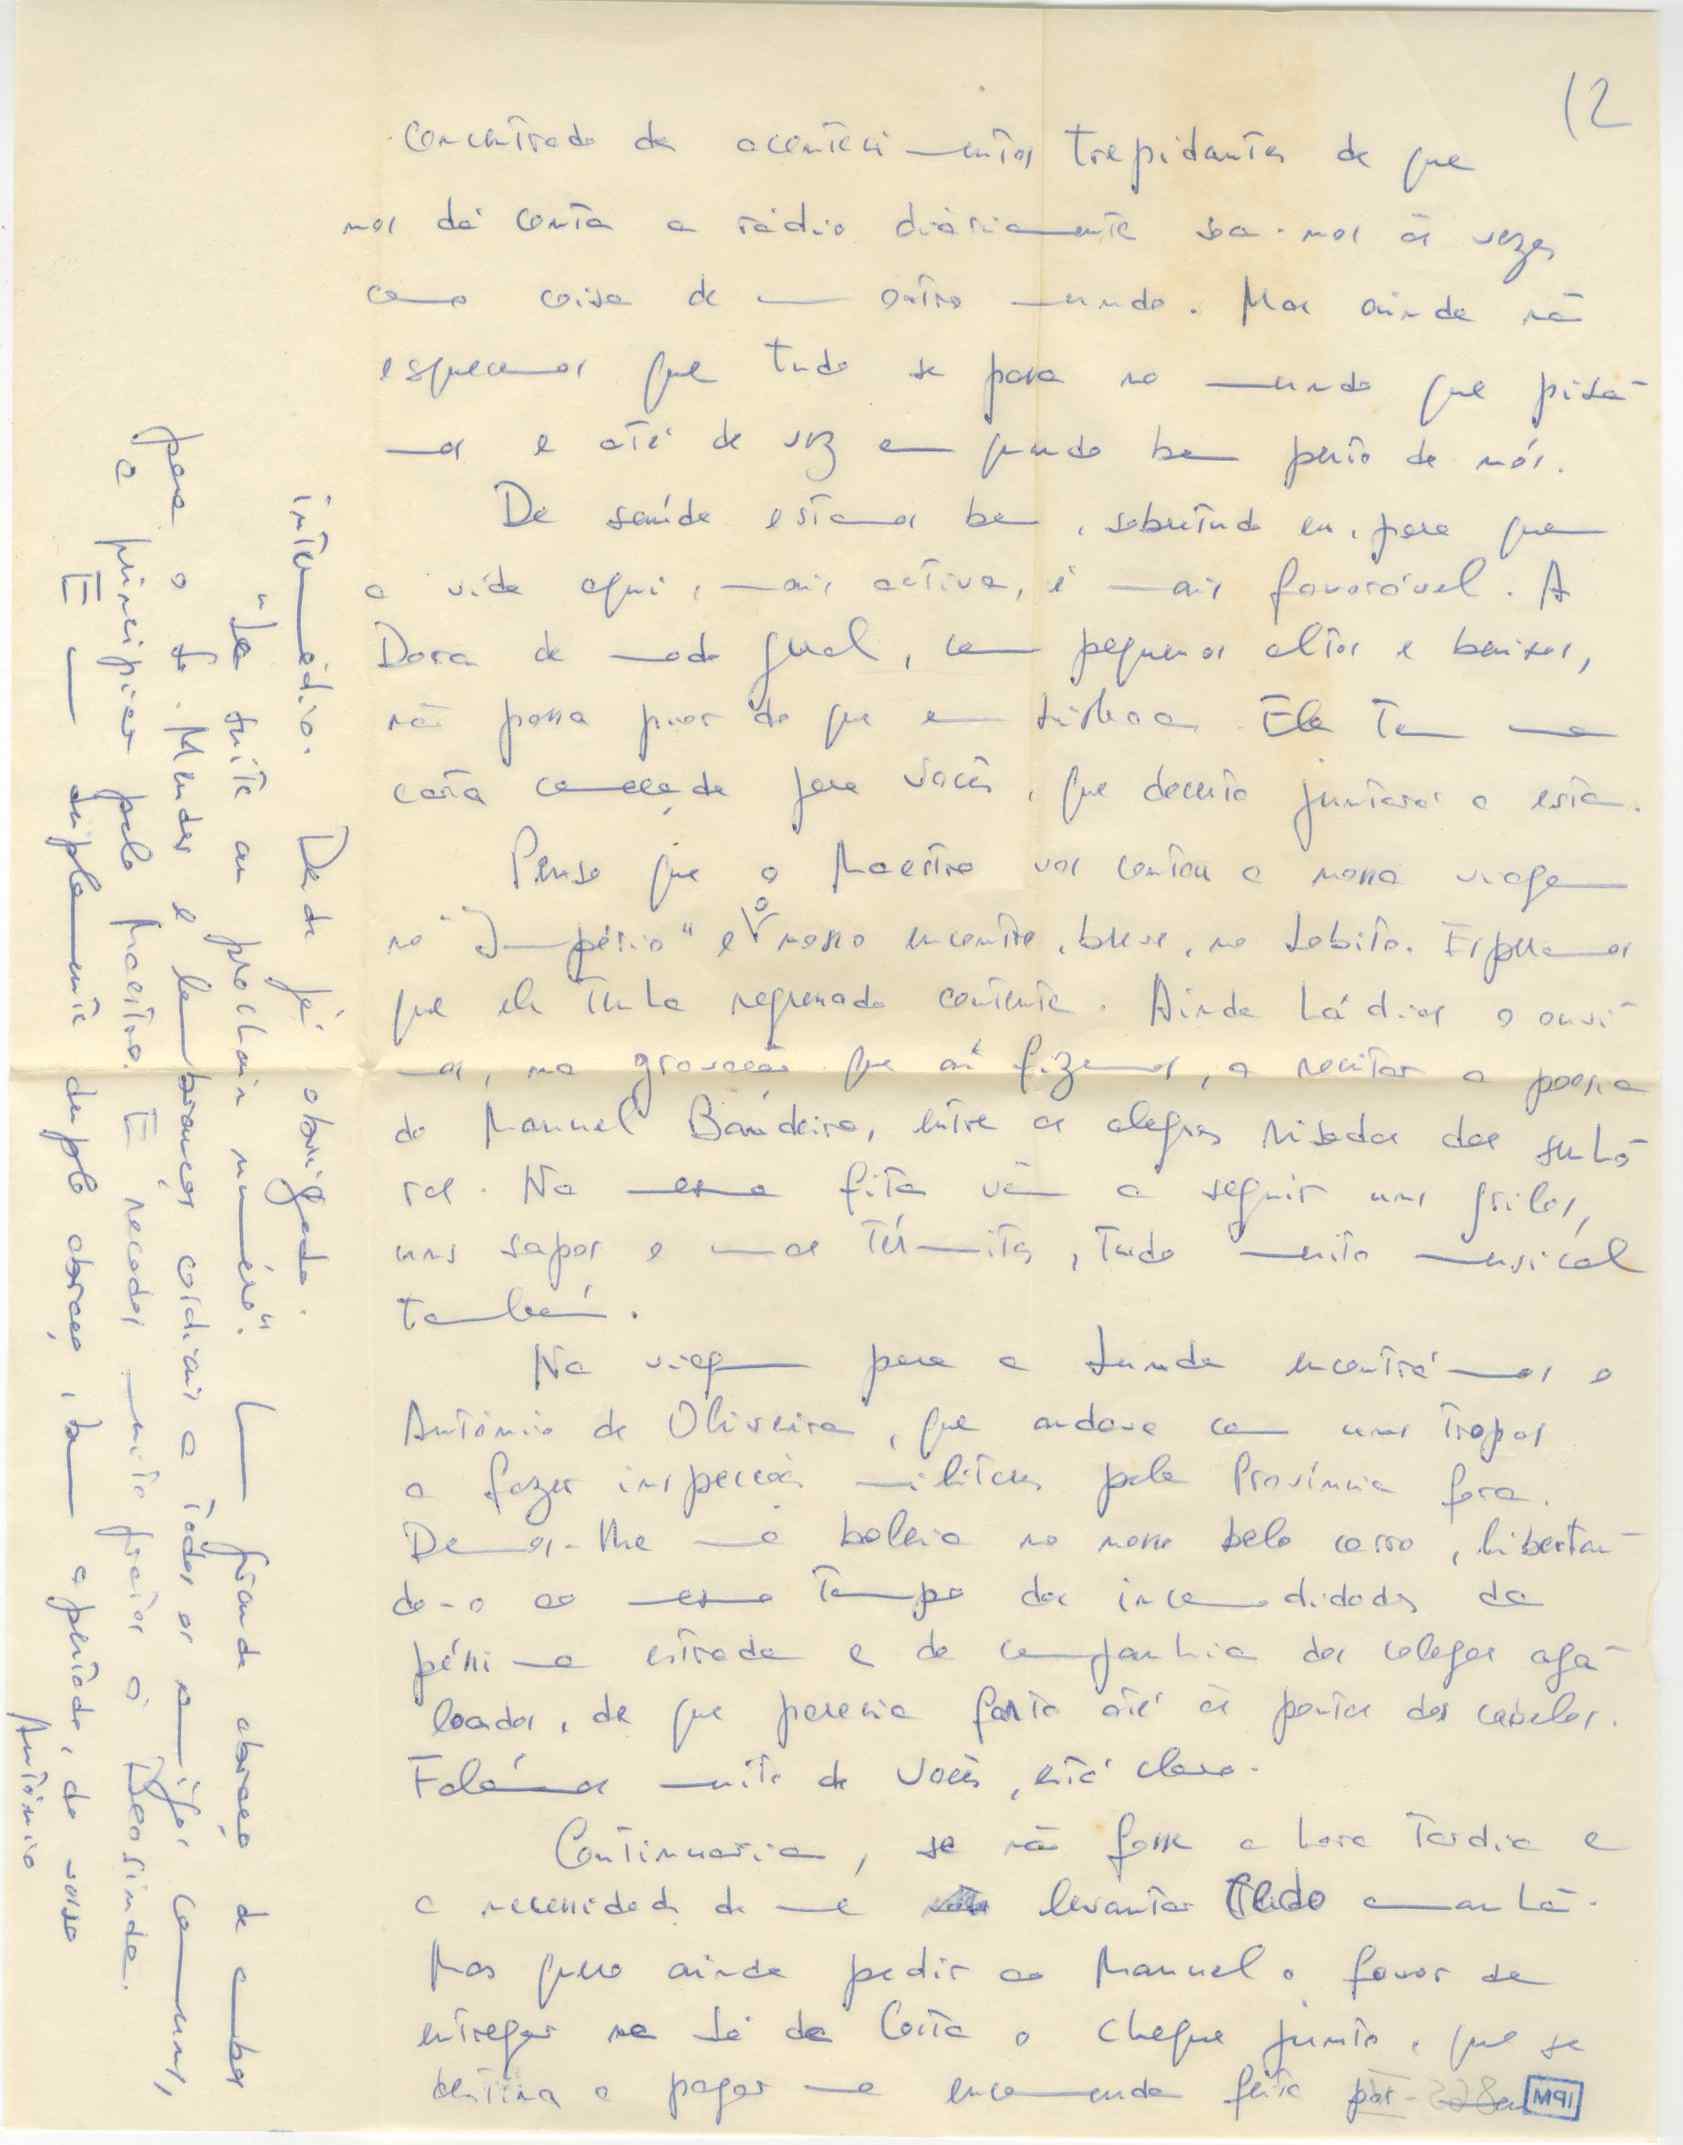 12
concentrado de acontecimentos trepidantes de que
nos dá conta a rádio diàriamente soa-nos às vezes
como coisa de um outro mundo. Mas ainda não
esquecemos que tudo se passa no mundo que pisa-
mos e até de vez em quando bem perto de nós.
De saúde estamos bem, sobretudo eu, para quem
a vida aqui, mais activa, é mais favorável. A
Dora de modo geral, com pequenos altos e baixos,
não passa pior do que em Lisboa. Ela tem uma
carta começada para vocês, que decerto juntará a esta.
Penso que o Maestro vos contou a nossa viagem
no "Império" e o nosso encontro, breve, no Lobito. Esperamos
que ele tenha regressado contente. Ainda há dias o ouvi-
mos, na gravação que aí fizemos, a recitar o poema
do Manuel Bandeira, entre as alegres risadas das senho-
ras. Na mesma fita vêm a seguir uns grilos,
uns sapos e umas térmitas, tudo muito musical
também.
Na viagem para a Lunda encontrámos o
António de Oliveira, que andava com umas tropas
a fazer inspecções militares pela Província fora.
Demos-lhe uma boleia no nosso belo carro, libertan-
do-o ao mesmo tempo das incomodidades da
péssima estrada e da companhia dos colegas aga-
loados, de que parecia farto até às pontas dos cabelos.
Falámos muito de vocês, está claro.
Continuaria, se não fosse a hora tardia e
a necessidade de me levantar cedo amanhã.
Mas quero ainda pedir ao Manuel o favor de
entregar na Sá da Costa o cheque junto, que se
destina a pagar uma encomenda feita por meu
M91
intermédio. Desde já obrigado.
"La suite au prochain numéro". Um grande abraço de ambos
para o Sr. Mendes e lembranças cordiais a todos os amigos comuns,
a principiar pelo Maestro. E recados muito gratos à Deosinda.
E um duplamente duplo abraço, bem apertado, do vosso
António